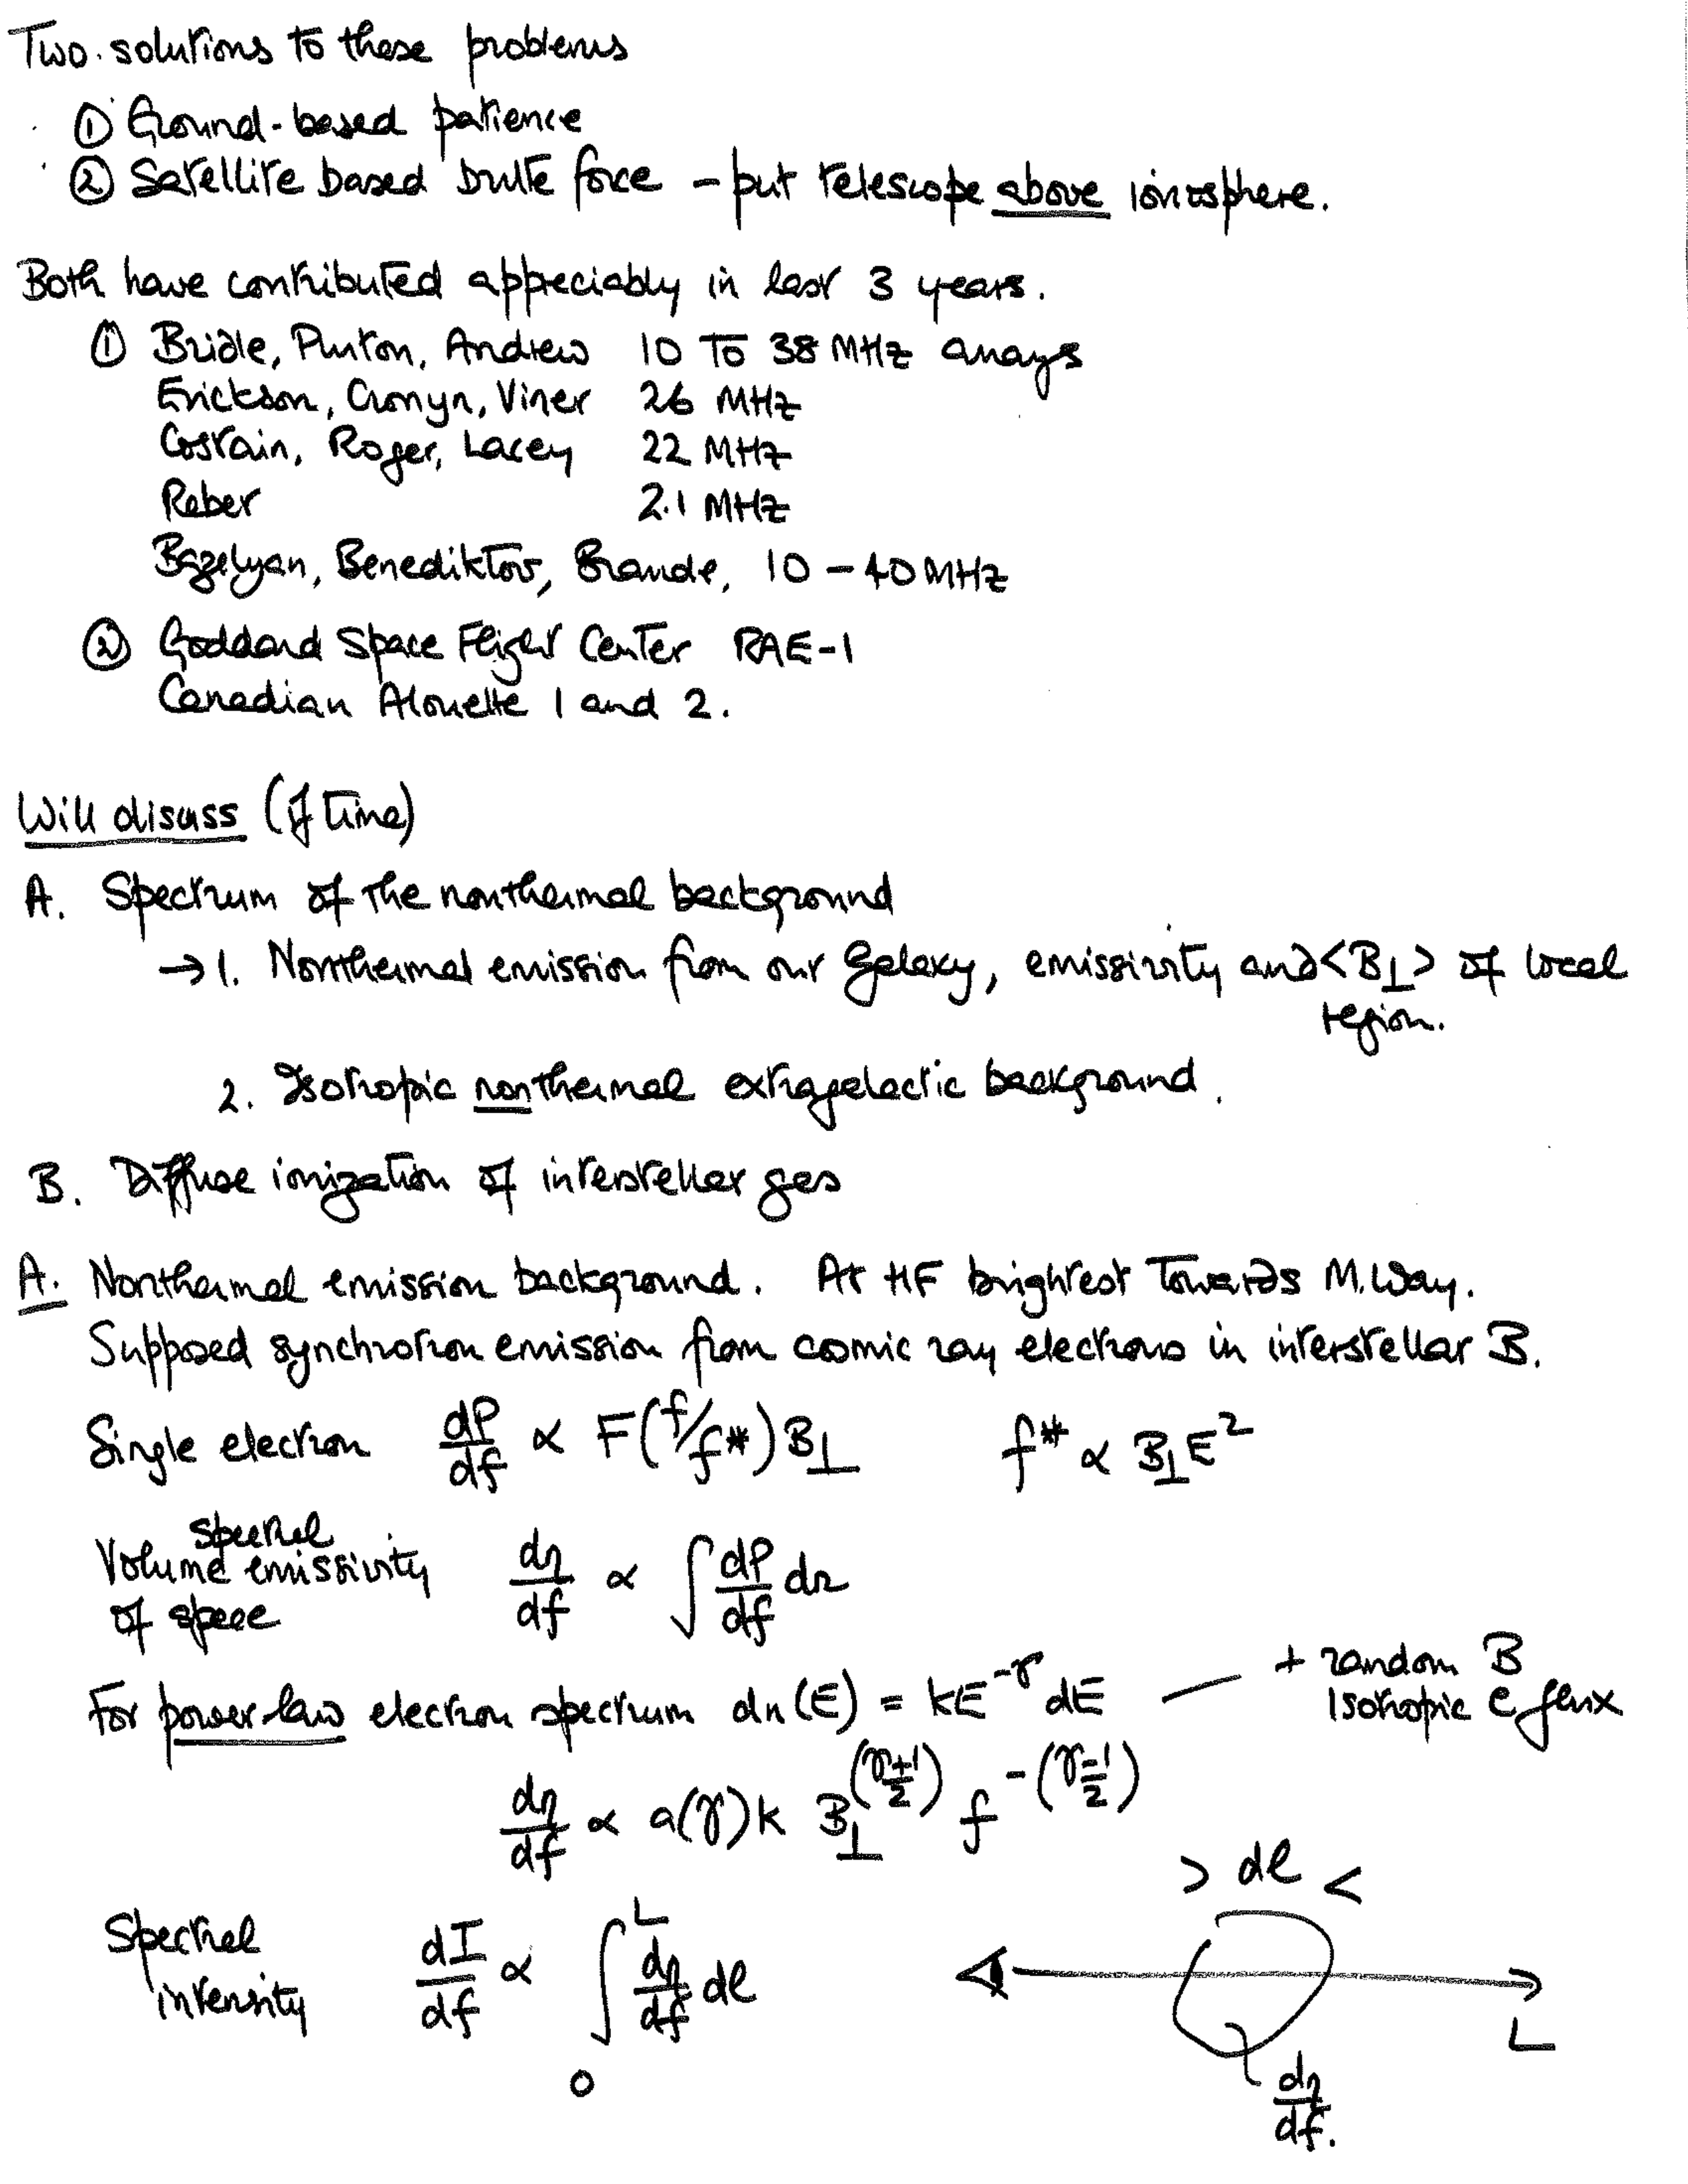 Two solutions to these problems
① Ground-based patience
② Satellite based brute force – put telescope above ionosphere.
Both have contributed appreciably in last 3 years.
① Bridle, Purton, Andrew 10 to 38 MHz arrays
Erickson, Cronyn, Viner 26 MHz
Costain, Roger, Lacey 22 MHz
Reber 2.1 MHz
Bazelyan, Benediktov, Braude, 10 – 40 MHz
② Goddard Space Flight Center RAE-1
Canadian Alouette 1 and 2.
Will discuss (if time)
A. Spectrum of the nonthermal background
→ 1. Nonthermal emission from our Galaxy, emissivity and <B⊥> of local
region.
2. Isotropic nonthermal extragalactic background.
B. Diffuse ionization of interstellar gas
A. Nonthermal emission background. At HF brightest towards M.Way.
Supposed synchrotron emission from cosmic ray electrons in interstellar B.
Single electron dP/df ∝ F(f/f*) B⊥ f* ∝ B⊥E²
spectral
Volume emissivity dη/df ∝ ∫ dP/df dn
of space
+ random B
For power-law electron spectrum dn(E) = kE^-γ dE — Isotropic e flux
dη/df ∝ a(γ)k B⊥^((γ+1)/2) f^-((γ-1)/2)
> dl <
Spectral intensity dI/df ∝ ∫₀ᴸ dη/df dl
L
dη/df.